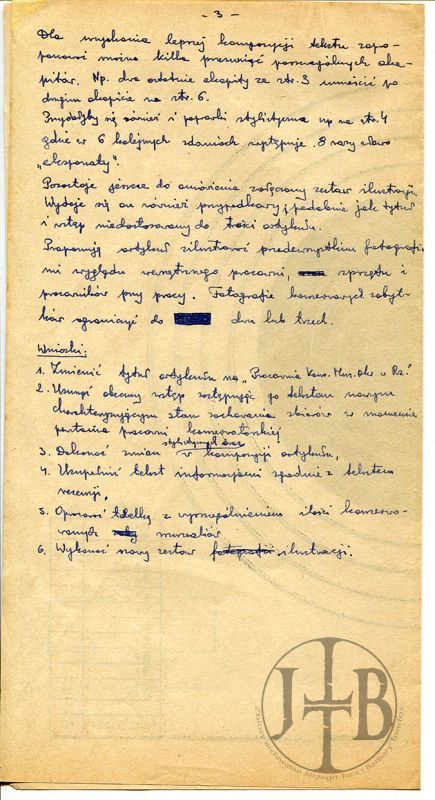 - 3 -
Dla uzyskania lepszej kompozycji tekstu zapo-
ponować można kilka przesunięć poszczególnych aka-
pitów. Np. dwa ostatnie akapity ze str. 3 umieścić po
drugim akapicie na str. 6.
Przydałyby się również i poprawki stylistyczne np na str. 4
gdzie w 6 kolejnych zdaniach występuje 8 razy słowo
„eksponaty".
Pozostaje jeszcze do omówienia załączony zestaw ilustracji.
Wydaje się on również przypadkowy i podobnie jak tytuł
i wstęp niedostosowany do treści artykułu.
Proponuję artykuł zilustrować przedewszystkim fotografia-
mi wyglądu wewnętrznego pracowni, sprzętu i
pracowników przy pracy. Fotografie konserwowanych zabyt-
ków ograniczyć do dwu lub trzech.
Wnioski:
1. Zmienić tytuł artykułu na „Pracownia Kons. Muz. Okr. w Rz."
2. Usunąć obecny wstęp zastępując go tekstem nowym
charakteryzującym stan zachowania zbiorów w momencie
powstania pracowni konserwatorskiej
3. Dokonać zmian stylistycznych oraz w kompozycji artykułu,
4. Uzupełnić tekst informacjami zgodnie z tekstem
recenzji,
5. Opracować tabelkę z wyszczególnieniem ilości konserwo-
wanych muzealiów
6. Wykonać nowy zestaw fotografii ilustracji.
JTB
Zbiory archiwalne Jerzego Tura i Barbary Tondos